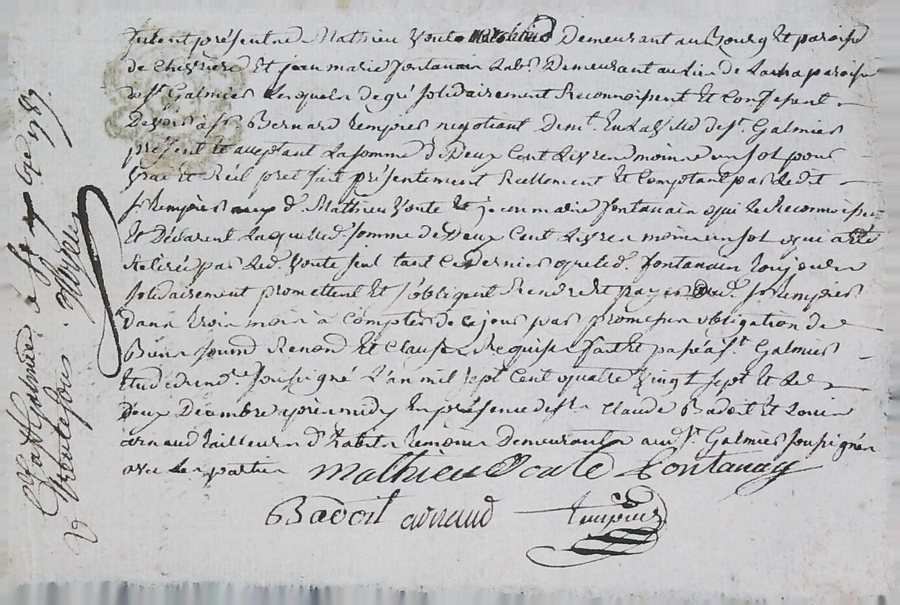 furent présents Mathieu Yonte Demeurant au Bourg Et paroisse
de Chevrière Et jean marie fontanain Labr. Demeurant au Lieu de paroisse
de St. Galmier Lesquels de gré solidairement Reconnoissent Et Confessent
Devoir à sr. Bernard negotiant Demt. En La ville de St. Galmier
présent Et acceptant La somme de Deux Cent Livres moins un sol pour
vrai et Réel pret fait présentement Réellement Et Comptant par le dit
sr. d. Mathieu Yonte Et jean marie fontanain qui Le Reconnoissent
Et Déclarent Laquelle d. somme de Deux Cent Livres moins un sol qui a été
Retirée par Led. Yonte seul tant Ce dernier que led. fontanain toujours
solidairement promettent Et s'obligent Rendre Et payer aud. sr.
dans trois mois à Compter de Ce jour par promesse obligation de
Biens soumd. Renond. Et Clauses Requises fait Et passé à St. Galmier
Etude du nre. soussigné L'an mil sept Cent quatre vingt sept Et Le
Deux Décembre après midy En présence de sr. Claude Badoit Et Louis
arnaud tailleur d'habits témoins Demeurants aud. St. Galmier soussignés
avec Les parties Mathieu Yonte fontanay
Badoit arnaud